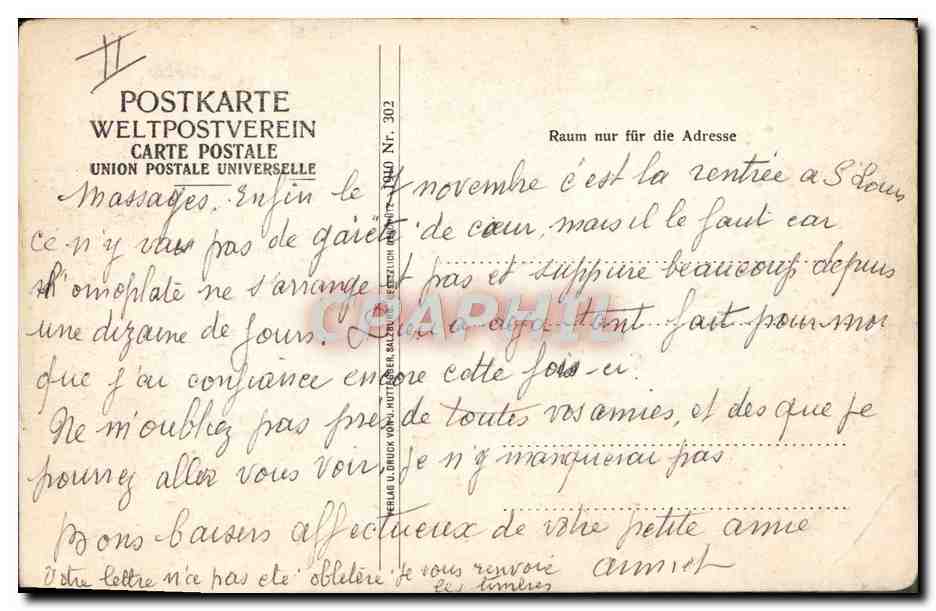 II
POSTKARTE
WELTPOSTVEREIN
CARTE POSTALE
UNION POSTALE UNIVERSELLE
Raum nur für die Adresse
1910 Nr. 302
VERLAG U. DRUCK VON J. HUTTEGGER, SALZBURG. GESETZLICH GESCHÜTZT
CPAPHIL
Massages. Enfin le 4 novembre c'est la rentrée a St Louis
ce n'y vais pas de gaieté de cœur, mais il le faut car
l'omoplate ne s'arrange pas et suppure beaucoup depuis
une dizaine de jours. Dieu a deja tant fait pour moi
que j'ai confiance encore cette fois-ci.
Ne m'oubliez pas près de toutes vos amies, et des que je
pourrez aller vous voir, je n'y manquerai pas
Bons baisers affectueux de votre petite amie
Votre lettre n'a pas eté obleteré je vous renvoie
les timbres